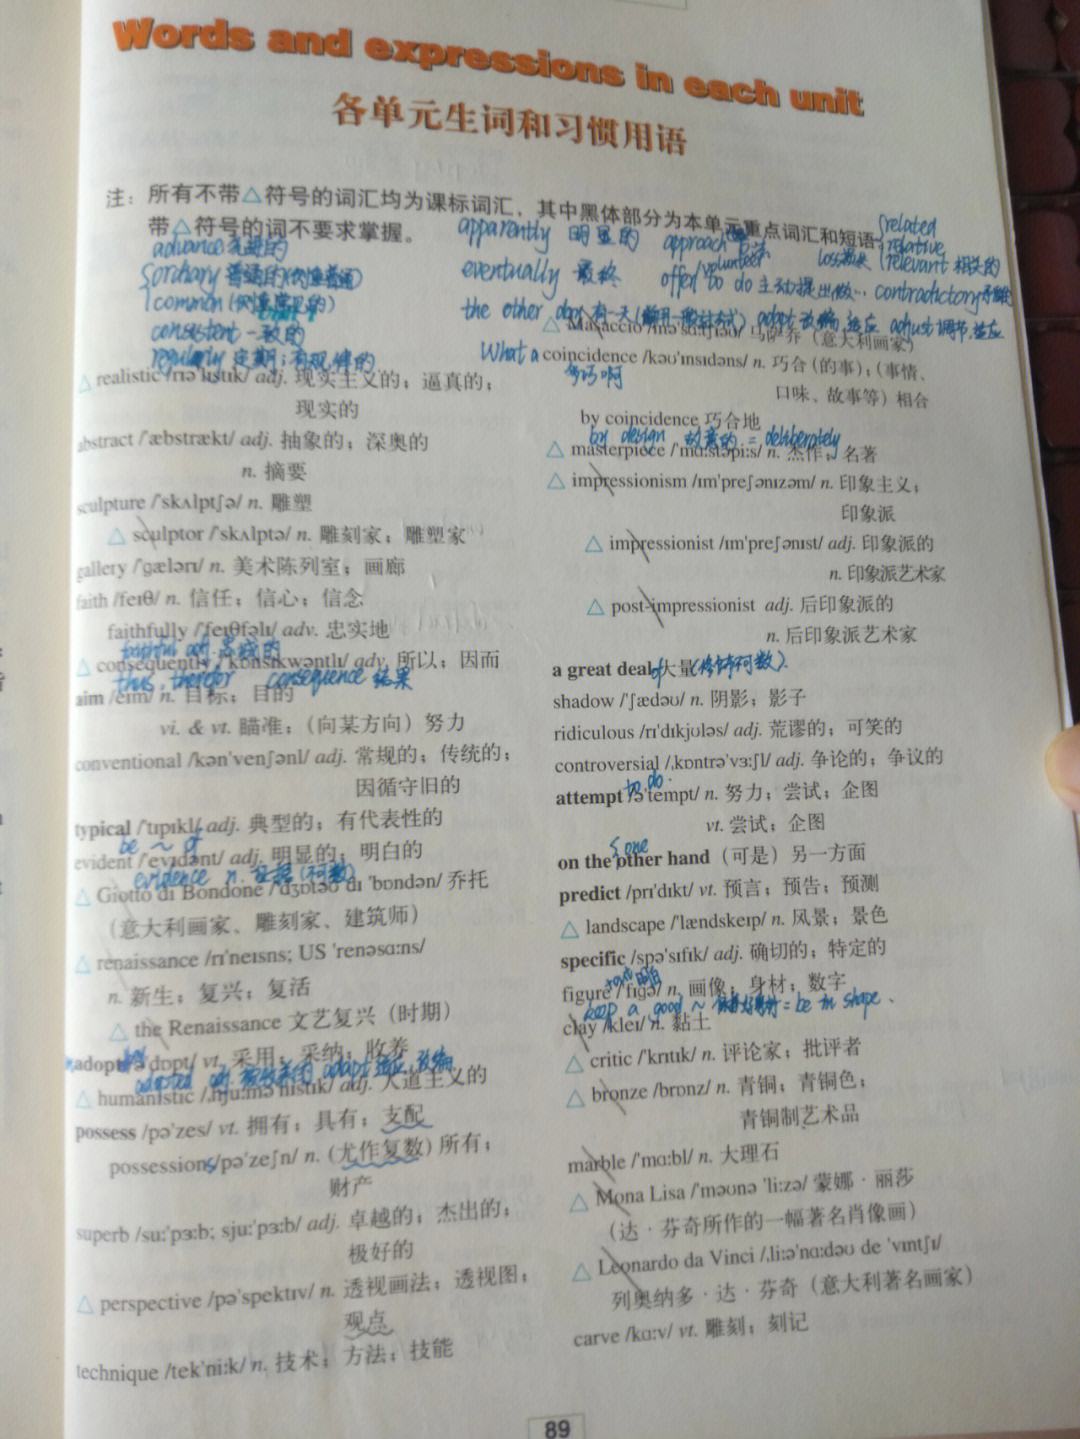 Words and expressions in each unit
各单元生词和习惯用语
注：所有不带△符号的词汇均为课标词汇，其中黑体部分为本单元重点词汇和短语
带△符号的词不要求掌握。
advance 先进的
ordinary 普通的
common
consistent 一致的
regularly 定期；有规律的
△ realistic /rɪə'lɪstɪk/ adj. 现实主义的；逼真的；
现实的
abstract /'æbstrækt/ adj. 抽象的；深奥的
n. 摘要
sculpture /'skʌlptʃə/ n. 雕塑
△ sculptor /'skʌlptə/ n. 雕刻家；雕塑家
gallery /'gælərɪ/ n. 美术陈列室；画廊
faith /feɪθ/ n. 信任；信心；信念
faithfully /'feɪθfəlɪ/ adv. 忠实地
faithful adj. 忠诚的
△ consequently /'kɒnsɪkwəntlɪ/ adv. 所以；因而
thus, therefor consequence 结果
aim /eɪm/ n. 目标；目的
vi. & vt. 瞄准；（向某方向）努力
conventional /kən'venʃənl/ adj. 常规的；传统的；
因循守旧的
typical /'tɪpɪkl/ adj. 典型的；有代表性的
be ~ of
evident /'evɪdənt/ adj. 明显的；明白的
evidence n. 证据（不可数）
△ Giotto di Bondone /'dʒɒtəʊ dɪ 'bɒndən/ 乔托
（意大利画家、雕刻家、建筑师）
△ renaissance /rɪ'neɪsns; US 'renəsɑ:ns/
n. 新生；复兴；复活
△ the Renaissance 文艺复兴（时期）
adopt /ə'dɒpt/ vt. 采用；采纳；收养
adopted adj. 被收养的 adapt 适应，改编
△ humanistic /ˌhju:mə'nɪstɪk/ adj. 人道主义的
possess /pə'zes/ vt. 拥有；具有；支配
possessions /pə'zeʃn/ n. (尤作复数) 所有；
财产
superb /su:'pɜ:b; sju:'pɜ:b/ adj. 卓越的；杰出的；
极好的
△ perspective /pə'spektɪv/ n. 透视画法；透视图；
观点
technique /tek'ni:k/ n. 技术；方法；技能
apparently 明显的 approach 方法
related
relative
relevant 相关的
eventually 最终 volunteer
offer to do 主动提出做… contradictory
the other day 有一天 adapt 改编，适应 adjust 调节，适应
△ Masaccio /mə'sɑ:tʃɪəʊ/ 马萨乔（意大利画家）
What a coincidence /kəʊ'ɪnsɪdəns/ n. 巧合 (的事)；(事情、
多巧啊
口味、故事等）相合
by coincidence 巧合地
by design 故意的 = deliberately
△ masterpiece /'mɑ:stəpi:s/ n. 杰作；名著
△ impressionism /ɪm'preʃənɪzəm/ n. 印象主义；
印象派
△ impressionist /ɪm'preʃənɪst/ adj. 印象派的
n. 印象派艺术家
△ post-impressionist adj. 后印象派的
n. 后印象派艺术家
a great deal of 大量 (修饰不可数).
shadow /'ʃædəʊ/ n. 阴影；影子
ridiculous /rɪ'dɪkjʊləs/ adj. 荒谬的；可笑的
controversial /ˌkɒntrə'vɜ:ʃl/ adj. 争论的；争议的
to do.
attempt /ə'tempt/ n. 努力；尝试；企图
vt. 尝试；企图
one
on the other hand（可是）另一方面
predict /prɪ'dɪkt/ vt. 预言；预告；预测
△ landscape /'lændskeɪp/ n. 风景；景色
specific /spə'sɪfɪk/ adj. 确切的；特定的
+out 明白
figure /'fɪgə/ n. 画像；身材；数字
keep a good ~ = be in shape
clay /kleɪ/ n. 黏土
△ critic /'krɪtɪk/ n. 评论家；批评者
△ bronze /brɒnz/ n. 青铜；青铜色；
青铜制艺术品
marble /'mɑ:bl/ n. 大理石
△ Mona Lisa /'məʊnə 'li:zə/ 蒙娜·丽莎
（达·芬奇所作的一幅著名肖像画）
△ Leonardo da Vinci /ˌli:ə'nɑ:dəʊ de 'vɪntʃɪ/
列奥纳多·达·芬奇（意大利著名画家）
carve /kɑ:v/ vt. 雕刻；刻记
89